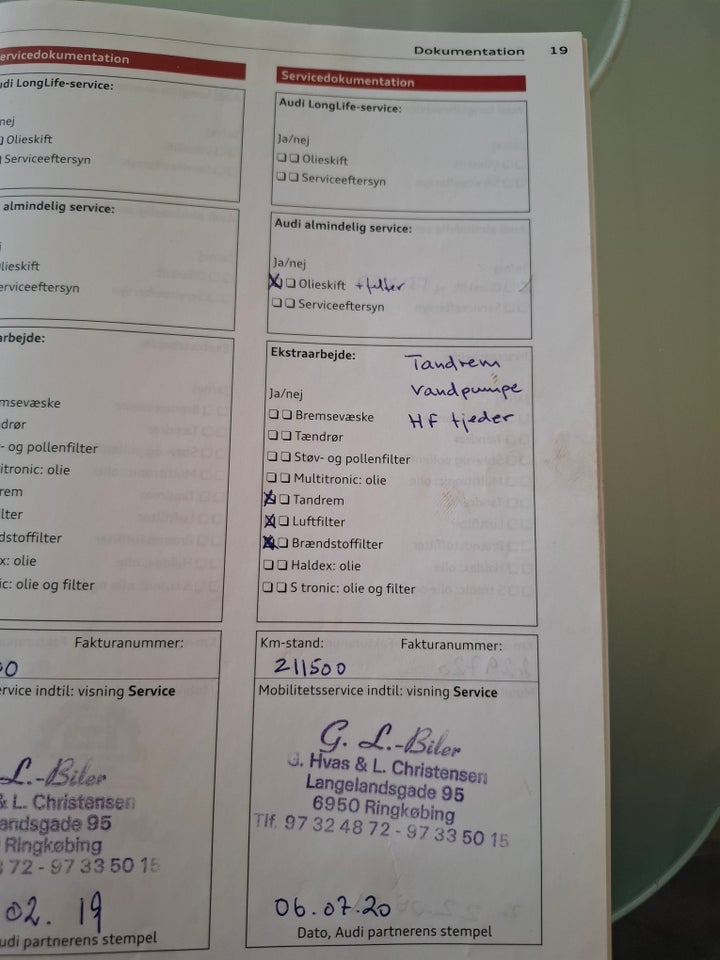 Dokumentation 19
ervicedokumentation
udi LongLife-service:
nej
Olieskift
Serviceeftersyn
almindelig service:
lieskift
erviceeftersyn
arbejde:
msevæske
drør
- og pollenfilter
itronic: olie
rem
lter
ndstoffilter
x: olie
ic: olie og filter
Fakturanummer:
00
rvice indtil: visning Service
L.-Biler
& L. Christensen
andsgade 95
Ringkøbing
72 - 97 33 50 15
02. 19
udi partnerens stempel
Servicedokumentation
Audi LongLife-service:
Ja/nej
Olieskift
Serviceeftersyn
Audi almindelig service:
Ja/nej
Olieskift +filter
Serviceeftersyn
Ekstraarbejde:
Tandrem
vandpumpe
HF fjeder
Ja/nej
Bremsevæske
Tændrør
Støv- og pollenfilter
Multitronic: olie
Tandrem
Luftfilter
Brændstoffilter
Haldex: olie
S tronic: olie og filter
Km-stand: Fakturanummer:
211500
Mobilitetsservice indtil: visning Service
G. L.-Biler
G. Hvas & L. Christensen
Langelandsgade 95
6950 Ringkøbing
Tlf. 97 32 48 72 - 97 33 50 15
06.07.20
Dato, Audi partnerens stempel